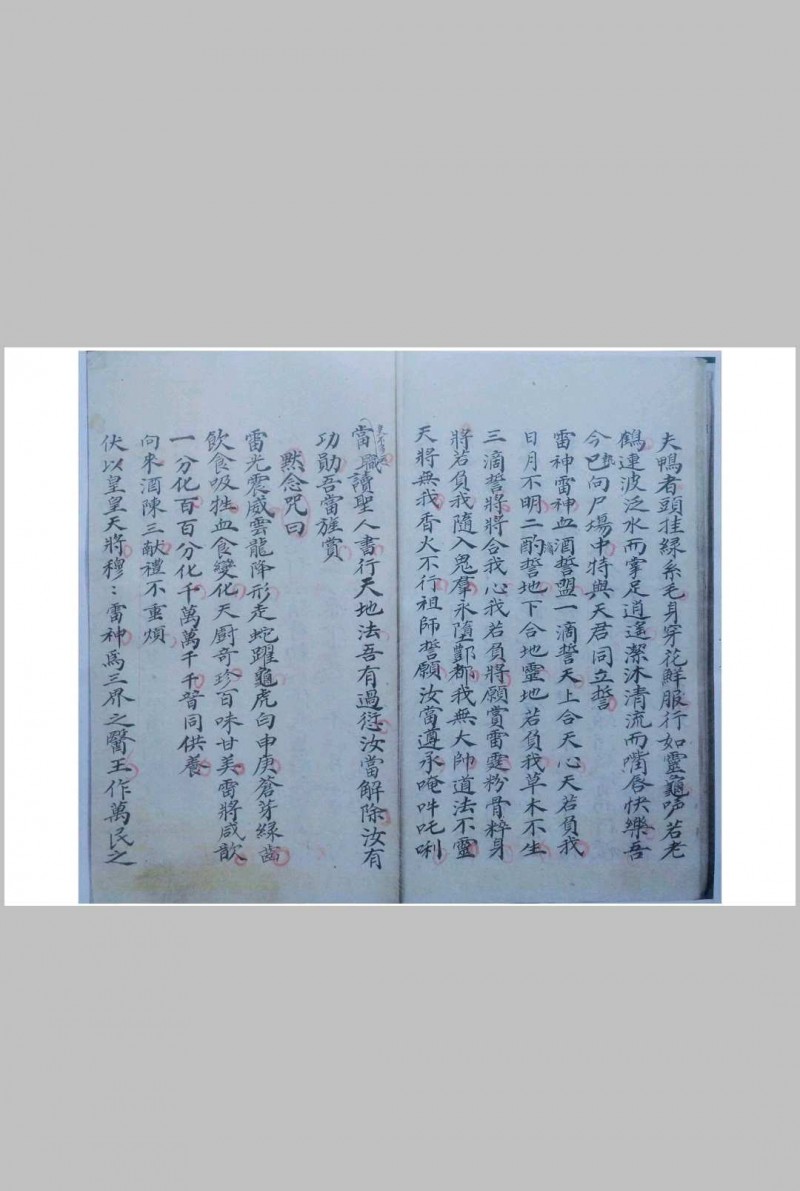 夫鴨者頭挂綠糸毛身穿花鮮服行如靈龜声若老
鶴連波泛水而掌足逍遥潔沐清流而嘴唇快樂吾
今已向尸場中特與天君同立誓
雷神雷神血酒誓盟一滴誓天上合天心天若負我
日月不明二酌誓地下合地靈地若負我草木不生
三滴誓將將合我心我若負將願賞雷霆粉骨粹身
將若負我隨入鬼羣永墮酆都我無大帥道法不靈
天將無我香火不行祖師誓願汝當遵承唵吽吒唎
當職讀聖人書行天地法吾有過愆汝當解除汝有
功勛吾當旌賞
默念咒曰
雷光震威雲龍降形走蛇躍龜虎白申庚蒼芽綠齒
飲食吸牲血食變化天厨奇珍百味甘美雷將咸歆
一分化百百分化千萬萬千千普同供養
向來酒陳三献禮不重煩
伏以皇皇天將穆：雷神爲三界之醫王作萬民之